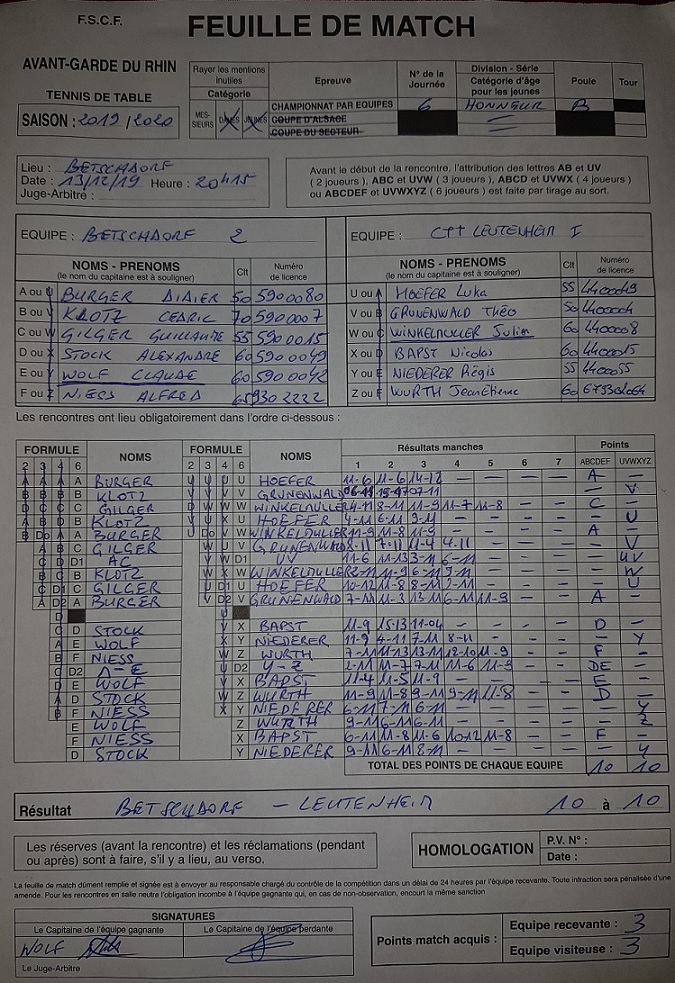 F.S.C.F.
FEUILLE DE MATCH
AVANT-GARDE DU RHIN
TENNIS DE TABLE
SAISON : 2019/2020
Rayer les mentions inutiles
Catégorie
Epreuve
N° de la Journée
Division - Série
Catégorie d'âge pour les jeunes
Poule
Tour
MES-SIEURS
CHAMPIONNAT PAR EQUIPES 6 HONNEUR B
COUPE D'ALSACE
COUPE DU SECTEUR
Lieu : BETSCHDORF
Date : 13/12/19 Heure : 20H15
Juge-Arbitre :
Avant le début de la rencontre, l'attribution des lettres AB et UV
( 2 joueurs ), ABC et UVW ( 3 joueurs ), ABCD et UVWX ( 4 joueurs )
ou ABCDEF et UVWXYZ ( 6 joueurs ) est faite par tirage au sort.
EQUIPE : BETSCHDORF 2
EQUIPE : CTT LEUTENHEIM I
NOMS - PRENOMS
(le nom du capitaine est à souligner)
Clt
Numéro de licence
NOMS - PRENOMS
(le nom du capitaine est à souligner)
Clt
Numéro de licence
A ou U BURGER DIDIER 50 5900080
U ou A HOEFER Luka 55 4400049
B ou V KLOTZ CEDRIC 70 5900007
V ou B GRUNENWALD Théo 50 4400004
C ou W GILGER GUILLAUME 55 5900015
W ou C WINKELMULLER Julien 60 4400008
D ou X STOCK ALEXANDRE 60 5900049
X ou D BAPST Nicolas 60 4400015
E ou Y WOLF CLAUDE 60 5900042
Y ou E NIEDERER Régis 55 4400055
F ou Z NIESS ALFRED
Z ou F WURTH JeanEtienne 60
Les rencontres ont lieu obligatoirement dans l'ordre ci-dessous :
FORMULE NOMS FORMULE NOMS Résultats manches Points
2 3 4 6 2 3 4 6 1 2 3 4 5 6 7 ABCDEF UVWXYZ
A BURGER U HOEFER 11-6 11-6 14-12 A
B KLOTZ V GRUNENWALD V
C GILGER W WINKELMULLER 4-11 8-11 11-9 11-7 11-8 C
B KLOTZ U HOEFER 4-11 6-11 9-11 U
A BURGER W WINKELMULLER A
C GILGER V GRUNENWALD 7-11 11-4 4-11 V
D1 AC D1 UV 11-6 11-13 3-11 6-11 UV
B KLOTZ W WINKELMULLER 2-11 11-9 6-11 9-11 W
C GILGER U HOEFER 10-12 11-8 8-11 U
A BURGER V GRUNENWALD 7-11 11-3 13-11 6-11 11-9 A
D STOCK X BAPST 11-9 15-13 11-04 D
E WOLF Y NIEDERER 11-9 4-11 7-11 8-11 Y
F NIESS Z WURTH 7-11 11-13 13-11 12-10 11-9 F
D2 D-E D2 Y-Z 2-11 11-7 7-11 11-6 DE
E WOLF X BAPST 11-4 11-5 11-9 E
D STOCK Z WURTH 11-9 11-8 9-11 9-11 11-8 D
F NIESS Y NIEDERER 6-11 7-11 6-11 Y
E WOLF Z WURTH 9-11 6-11 6-11 Z
F NIESS X BAPST 6-11 11-8 11-6 10-12 11-8 F
D STOCK Y NIEDERER 9-11 6-11 8-11 Y
TOTAL DES POINTS DE CHAQUE EQUIPE 10 10
Résultat BETSCHDORF - LEUTENHEIM 10 à 10
Les réserves (avant la rencontre) et les réclamations (pendant
ou après) sont à faire, s'il y a lieu, au verso.
HOMOLOGATION
P.V. N° :
Date :
La feuille de match dûment remplie et signée est à envoyer au responsable chargé du contrôle de la compétition dans un délai de 24 heures par l'équipe recevante. Toute infraction sera pénalisée d'une
amende. Pour les rencontres en salle neutre l'obligation incombe à l'équipe gagnante qui, en cas de non-observation, encourt la même sanction
SIGNATURES
Le Capitaine de l'équipe gagnante
Le Capitaine de l'équipe perdante
WOLF
Le Juge-Arbitre
Points match acquis :
Equipe recevante : 3
Equipe visiteuse : 3